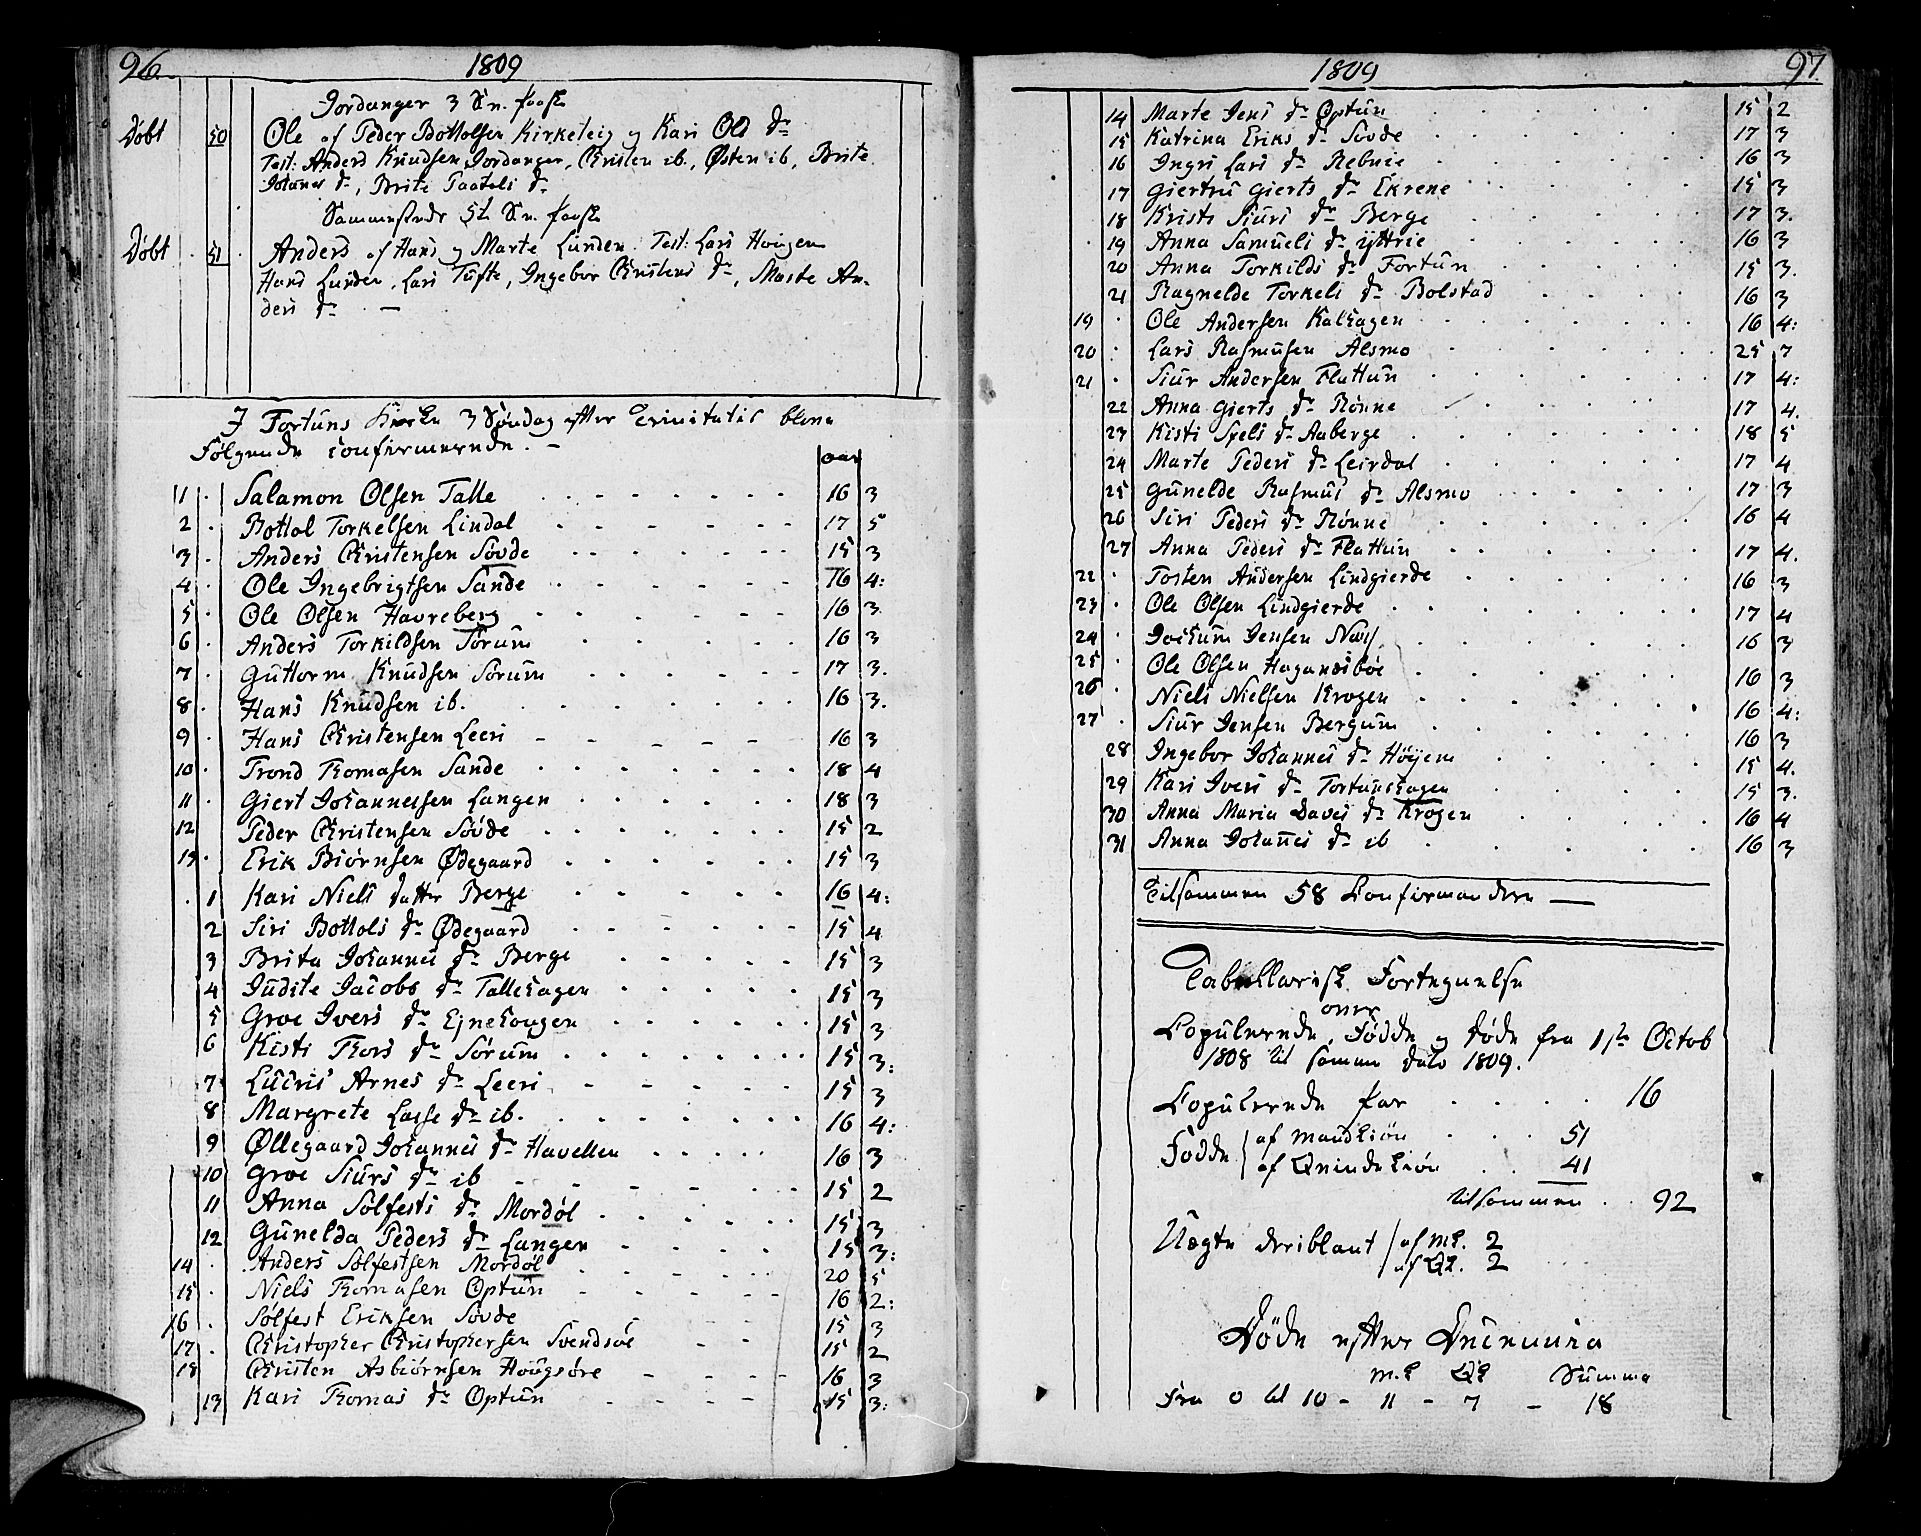 96 1809
Jordanger 3 Sn. paask
Døbt 50 Ole af Peder Bottolsen Kirketeig og Kari Ols dr
Test: Anders Knudsen Jordanger, Christen ib., Østen ib, Brite
Johanes dr, Brite Taatels dr
Sammestæds 5te Sn. paask
Døbt 51 Anders af Hans og Marte Lunden Test: Lars Hougen
Hans Lunden, Lars Tufte, Ingebor Christens dr, Marte An-
ders dr —
I Fortuns Kirke 3 Søndag efter Trinitatis bleve
Følgende confirmerede. —
aar
1 Salamon Olsen Talle 16 3
2 Bottol Torkelsen Lindal 17 5
3 Anders Christensen Søvde 15 3
4 Ole Ingebrigtsen Sande 16 4:
5 Ole Olsen Havreberg 16 3.
6 Anders Torkildsen Sørum 16 3
7 Guttorm Knudsen Sørum 17 3.
8 Hans Knudsen ib. 16 3.
9 Hans Christensen Leeri 16 3
10 Trond Thomasen Sande 18 4
11 Giert Johannessen Langen 18 3
12 Peder Christensen Søvde 15 2
13 Erik Biørnsen Ødegaard 15 3
1 Kari Niels datter Berge 16 4:
2 Siri Bottols dr Ødegaard 15 4
3 Brita Johannes dr Berge 15 3
4 Judite Jacobs dr Tallehagen 15 3
5 Groe Ivers dr Ejnehougen 15 3
6 Kisti Thors dr Sørum 15 3:
7 Lucris Arnes dr Leeri 15 3
8 Margrete Lasse dr ib. 16 4:
9 Øllegaard Johannes dr Havellen 16 3
10 Groe Siurs dr ib 15 2
11 Anna Solfests dr Mordøl 15 3
12 Gunelda Peders dr Langen 15 3:
14 Anders Solfestsen Mordøl 20 5
15 Niels Thomasen Optun 16 2:
16 Solfest Eriksen Søvde 15 3
17 Christopher Christophersen Svendsøe 15 2
18 Christen Asbiørnsen Hougsøre 16 3
13 Kari Thomas dr Optun 15 3:
1809 97
14 Marte Jens dr Optun 15 2
15 Katrina Eriks dr Søvde 17 3
16 Ingri Lars dr Rebnie 16 3
17 Giertru Gierts dr Ekrene 15 3
18 Kristi Siurs dr Berge 17 3.
19 Anna Samuels dr Yttrie 16 3
20 Anna Torkilds dr Fortun 15 3.
21 Ragnelde Torkels dr Bolstad 16 3
19 Ole Andersen Kalhagen 16 4:
20 Lars Rasmusen Alsmo 25 7
21 Siur Andersen Flattun 17 4:
22 Anna Gierts dr Rønne 17 4.
23 Kisti Spels dr Aaberge 18 5
24 Marte Peders dr Leirdal 17 4
25 Gunelde Rasmus dr Alsmo 17 3
26 Siri Peders dr Rønne 16 4
27 Anna Peders dr Flattun 17 4.
22 Tosten Andersen Lindgierde 16 3
23 Ole Olsen Lindgierde 17 4
24 Jochum Jensen Næss 16 3
25 Ole Olsen Haganesbøe 16 3
26 Niels Nielsen Krogen 16 4:
27 Siur Jensen Bergum 16 3
28 Ingebor Johannes dr Høijem 15 4.
29 Kari Ivers dr Fortunshagen 15 3.
30 Anna Maria Daves dr Krogen 16 4
31 Anna Johanes dr ib 16 3
Tilsammen 58 Confirmandere —
Tabellarisk Fortegnelse
over
Copulerede, Fødde og døde fra 1ste Octob
1808 til samme Dato 1809.
Copulerede par 16
Fødde af Mandkiøn 51
af Qvindekiøn 41
tilsammen 92
Uægte deriblant af Mk. 2
af Qk. 2
Døde efter Decennia
M.k Qk Summa
Fra 0 til 10 - 11 - 7 - 18